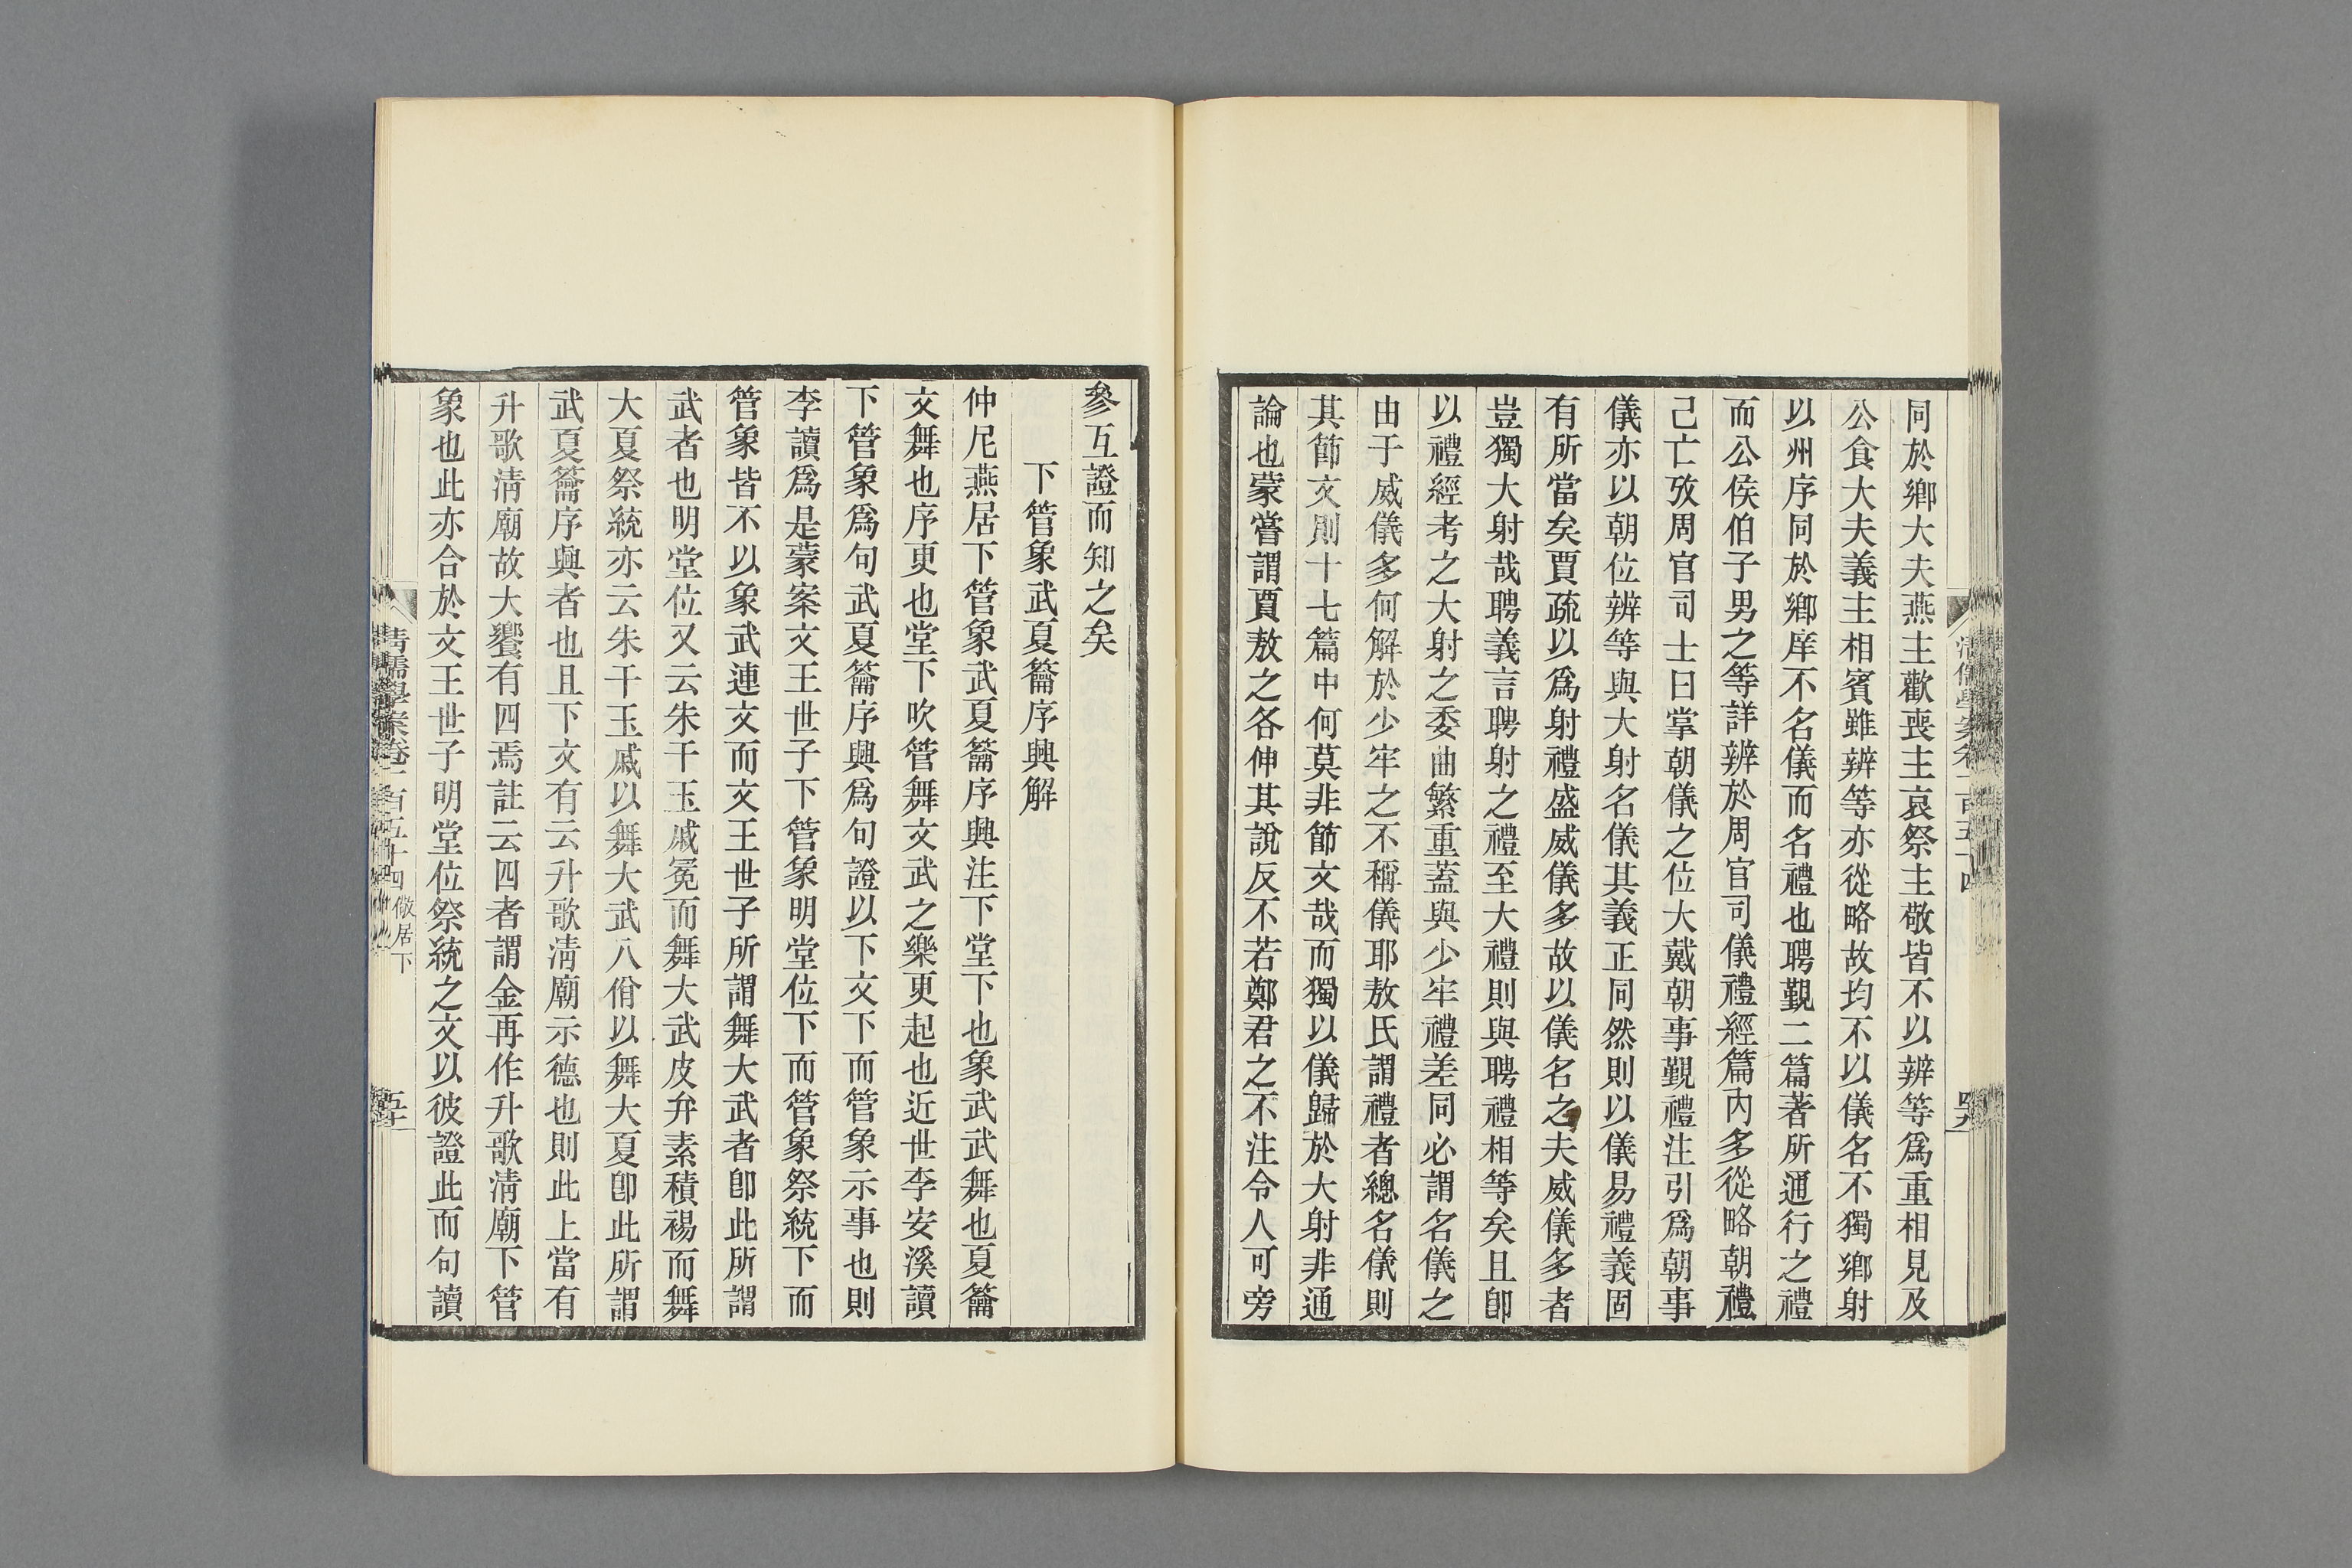 同於鄉大夫燕主歡喪主哀祭主敬皆不以辨等爲重相見及
公食大夫義主相賓雖辨等亦從略故均不以儀名不獨鄉射
以州序同於鄉庠不名儀而名禮也聘覲二篇著所通行之禮
而公侯伯子男之等詳辨於周官司儀禮經篇內多從略朝禮
己亡攷周官司士曰掌朝儀之位大戴朝事覲禮注引爲朝事
儀亦以朝位辨等與大射名儀其義正同然則以儀易禮義固
有所當矣賈疏以爲射禮盛威儀多故以儀名之夫威儀多者
豈獨大射哉聘義言聘射之禮至大禮則與聘禮相等矣且卽
以禮經考之大射之委曲繁重蓋與少牢禮差同必謂名儀之
由于威儀多何解於少牢之不稱儀耶敖氏謂禮者總名儀則
其節文則十七篇中何莫非節文哉而獨以儀歸於大射非通
論也蒙嘗謂賈敖之各伸其說反不若鄭君之不注令人可旁
參互證而知之矣
下管象武夏籥序興解
仲尼燕居下管象武夏籥序興注下堂下也象武武舞也夏籥
文舞也序更也堂下吹管舞文武之樂更起也近世李安溪讀
下管象爲句武夏籥序興爲句證以下文下而管象示事也則
李讀爲是蒙案文王世子下管象明堂位下而管象祭統下而
管象皆不以象武連文而文王世子所謂舞大武者卽此所謂
武者也明堂位又云朱干玉戚冕而舞大武皮弁素積裼而舞
大夏祭統亦云朱干玉戚以舞大武八佾以舞大夏卽此所謂
武夏籥序興者也且下文有云升歌淸廟示德也則此上當有
升歌淸廟故大饗有四焉註云四者謂金再作升歌淸廟下管
象也此亦合於文王世子明堂位祭統之文以彼證此而句讀
淸儒學案卷一百五十四 儆居下